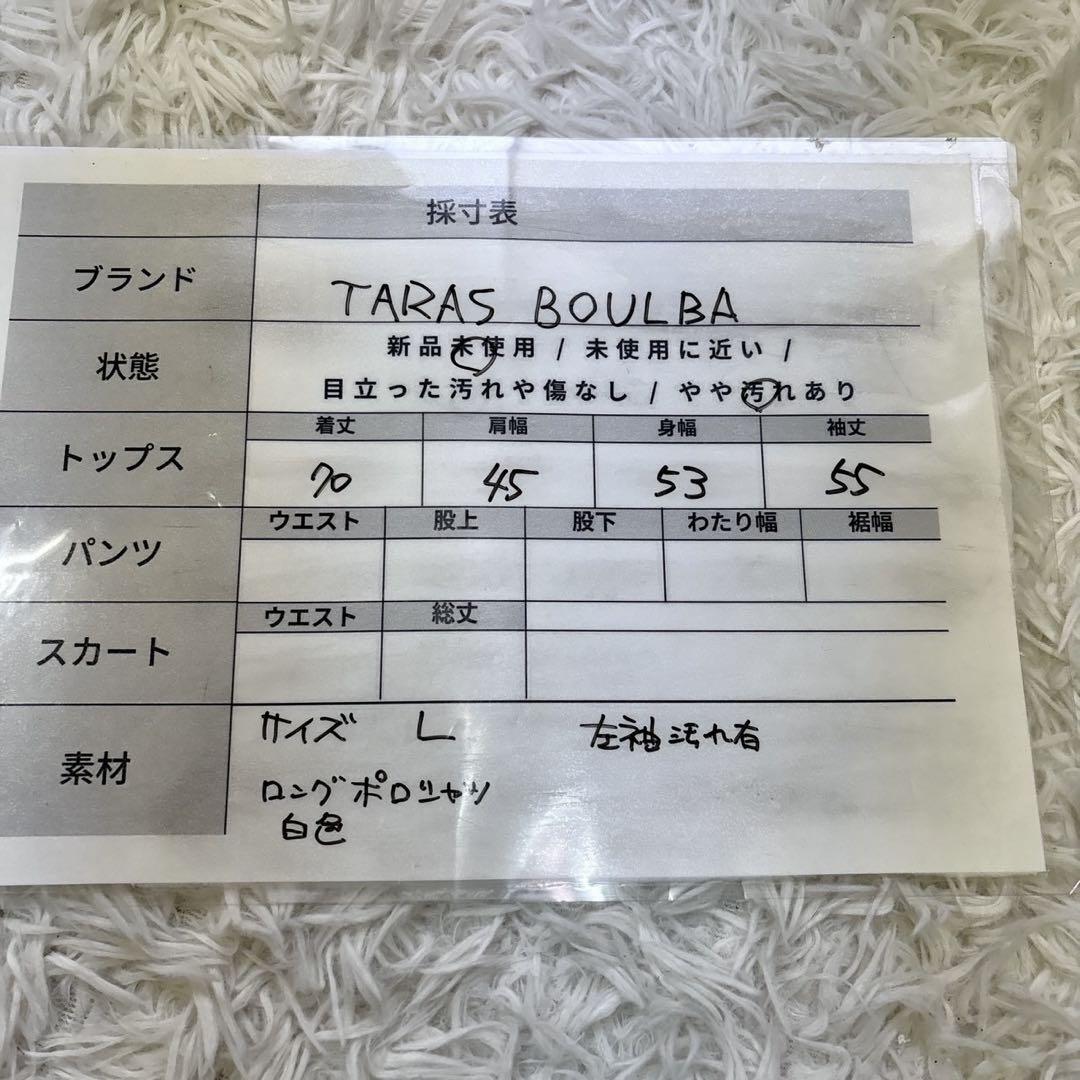 採寸表
ブランド
TARAS BOULBA
状態
新品未使用 / 未使用に近い /
目立った汚れや傷なし / やや汚れあり
トップス
着丈 肩幅 身幅 袖丈
70 45 53 55
パンツ
ウエスト 股上 股下 わたり幅 裾幅
スカート
ウエスト 総丈
素材
サイズ L 左袖汚れ有
ロングポロシャツ
白色